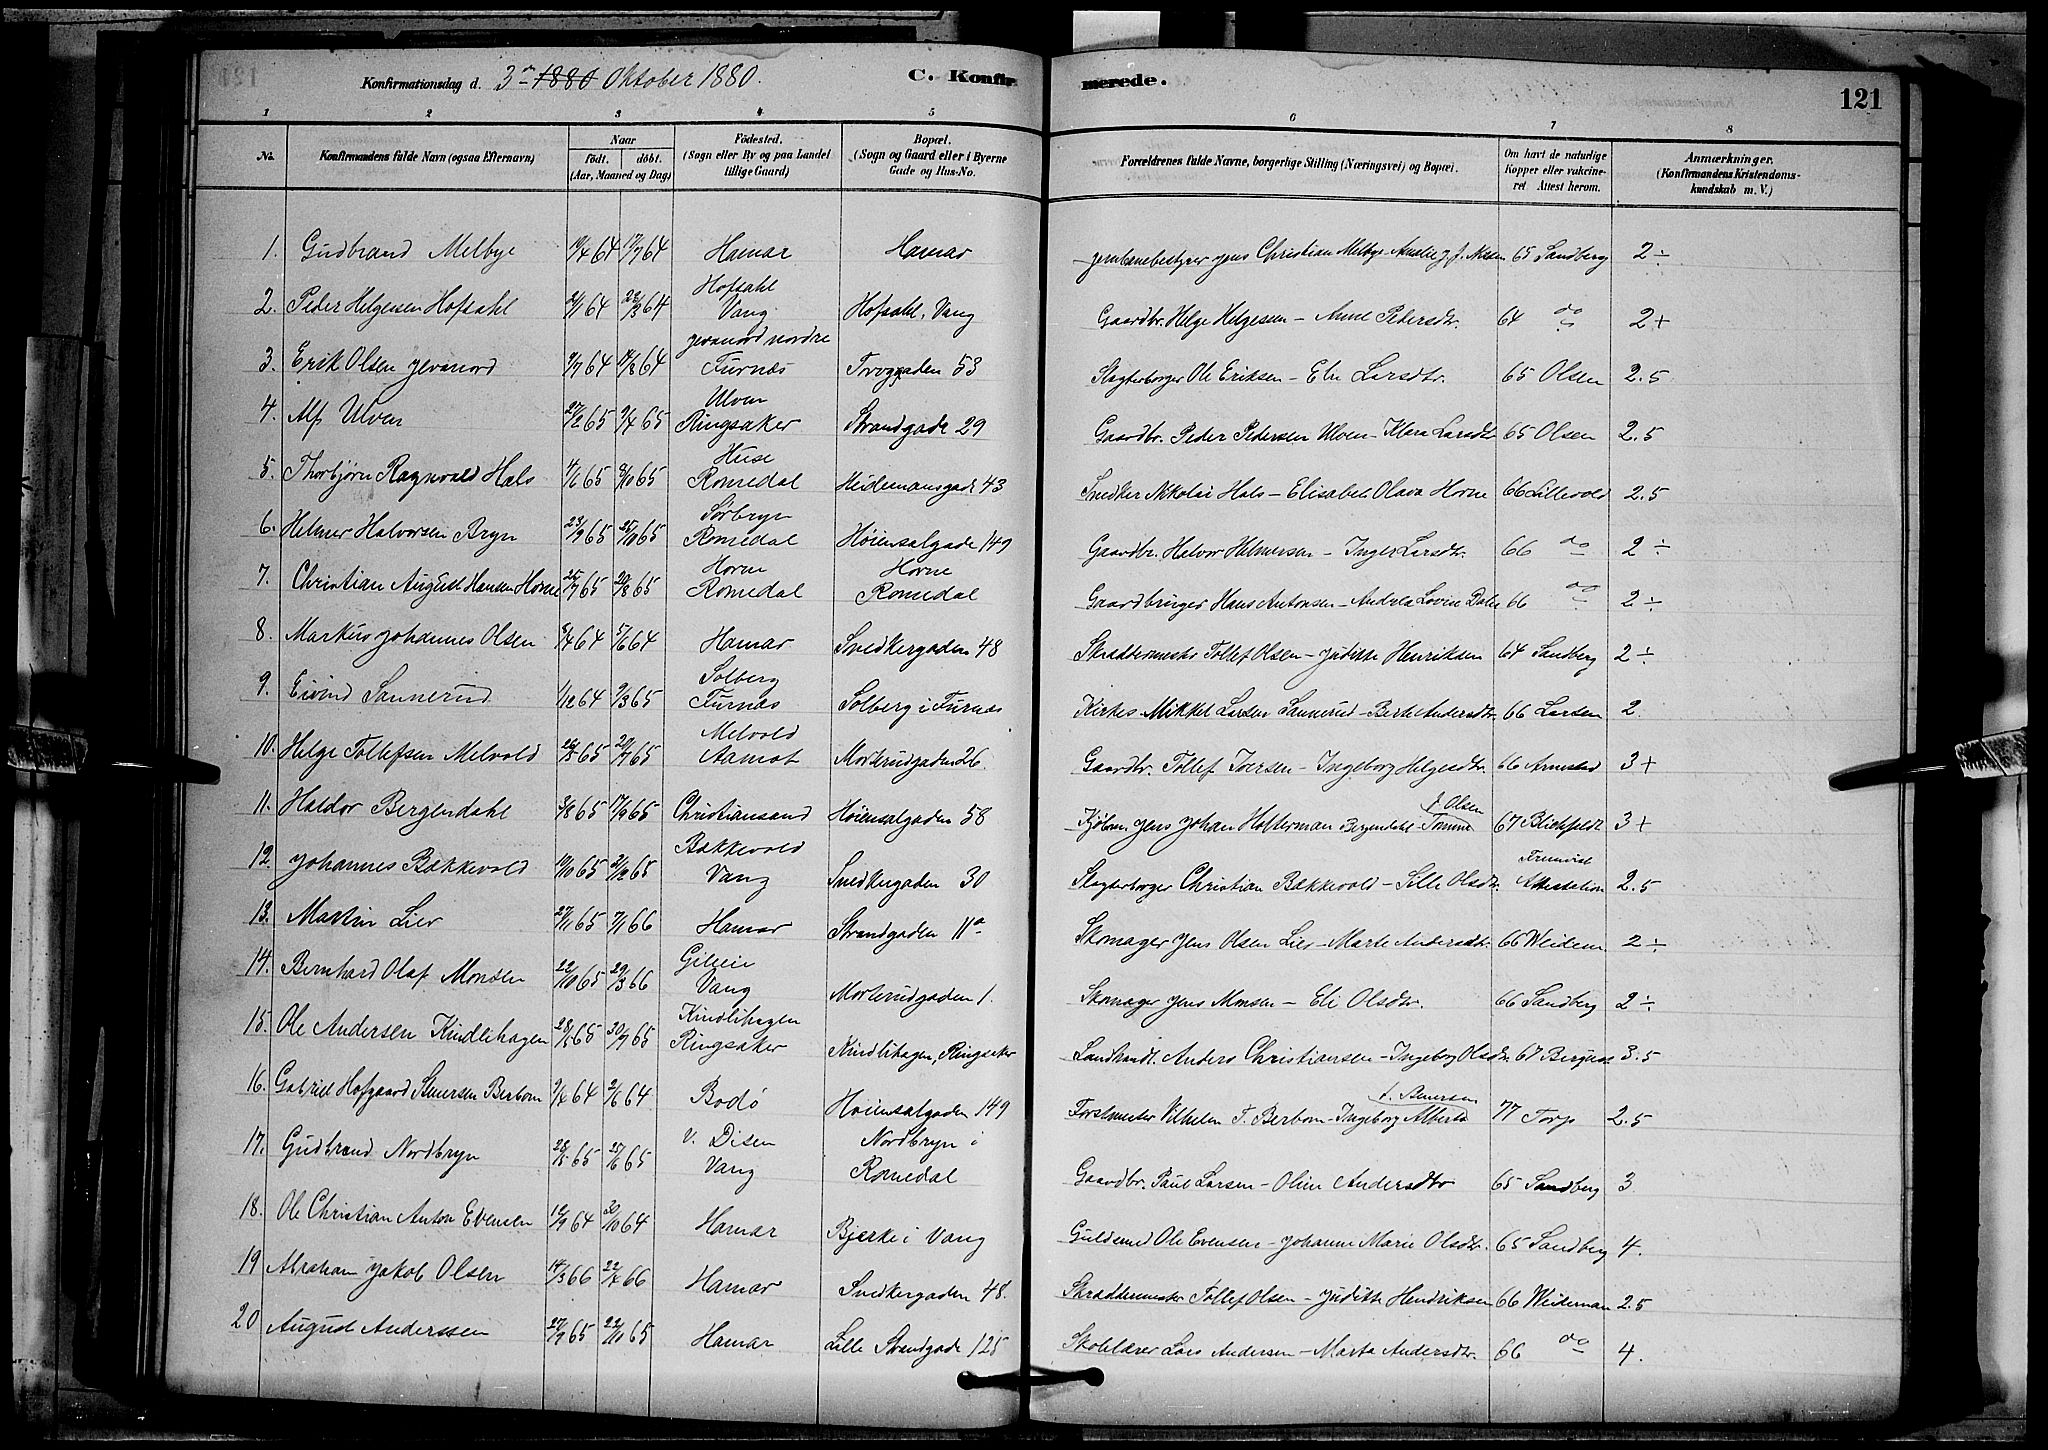 Konfirmationsdag d. 3die 1880 Oktober 1880. C. Konfir merede. 121
1 2 3 4 5 6 7 8
No. Konfirmandens fulde Navn (ogsaa Efternavn) Naar født. døbt. (Aar, Maaned og Dag) Fødested. (Sogn eller By og paa Landet tillige Gaard) Bopæl. (Sogn og Gaard eller i Byerne Gade og Hus-No. Forældrenes fulde Navne, borgerlige Stilling (Næringsvei) og Bopæl. Om havt de naturlige Kopper eller vakcineret. Attest herom. Anmærkninger. (Konfirmandens Kristendomskundskab m. V.)
1. Gudbrand Melbye 64 17/7 64 Hamar Hamar Jernbanebestyrer Jens Christian Melbye Amalie J. f. Nissen 65 Sandberg 2 ÷
2. Peder Helgesen Hofsahl 2/1 64 28/3 64 Hofsahl Vang Hofsahl, Vang Gaardbr. Helge Helgesen – Anne Pedersdtr. 64 do 2+
3. Erik Olsen Jevanord 9/7 64 14/8 64 Jevanord nordre Furnæs Troggaden 53 Slagterborger Ole Eriksen – Eli Larsdtr. 65 Olsen 2.5
4. Alf Ulven 27/2 65 9/4 65 Ulven Ringsaker Strandgade 29 Gaardbr. Peder Pedersen Ulven – Klara Larsdtr 65 Olsen 2.5
5. Thorbjørn Ragnvald Hals 4/6 65 8/10 65 Huse Romedal Heidemansgade 43 Snedker Nikolai Hals – Elisabet Olava Horne 66 Lillevold 2.5
6. Helmer Halvorsen Bryn 23/9 65 25/10 65 Sørbryn Romedal Høiensalgade 149 Gaardbr. Halvor Helmersen – Inger Larsdtr. 66 do 2 ÷
7. Christian August Hansen Horne 25/7 65 20/8 65 Horne Romedal Horne Romedal Gaardbruger Hans Antonsen – Andrea Lovise Dahl 66 do 2 ÷
8. Markus Johannes Olsen 8/4 64 5/6 64 Hamar Snedkergaden 48 Skræddermester Tollef Olsen – Juditte Henriksen 64 Sandberg 2 ÷
9. Eivind Sannerud 1/12 64 9/3 65 Solberg Furnæs Solberg i Furnæs Kirkes. Mikkel Larsen Sannerud – Berte Andersdtr. 66 Larsen 2.
10. Helge Tollefsen Melvold 26/5 65 29/7 65 Melvold Aamot Morterudgaden 26. Gaardbr. Tollef Iversen – Ingeborg Helgesdtr. 66 Arnestad 3+
11. Haldor Bergendahl 3/8 65 17/9 65 Christiansand Høiensalgaden 58 Kjøbm. Jens Johan Holterman Bergendahl – Tomine f. Olsen 67 Blichfeldt 3+
12. Johannes Bækkevold 19/10 65 31/12 65 Bækkevold Vang Snedkergaden 30 Slagterborger Christian Bækkevold – Sille Olsdtr. Fremvist Attestation 2.5
13. Martin Lier 27/11 65 7/1 66 Hamar Strandgaden 11a Skomager Jens Olsen Lier – Marte Andersdtr. 66 Weidem 2 ÷
14. Bernhard Olaf Monsen 22/10 65 29/3 66 Vang Morterudgaden 1. Skomager Jens Monsen – Eli Olsdtr. 66 Sandberg 2 ÷
15. Ole Andersen Kindlihagen 28/5 65 30/7 65 Kindlihagen Ringsaker Kindlihagen, Ringsaker Landhandl. Anders Christiansen – Ingeborg Olsdtr. 67 3.5
16. Gabriel Hofgaard Steensen Berbom 9/4 64 2/6 64 Bodø Høiensalgaden 149 Forstmester Vilhelm T. Berbom – Ingeborg Alberta f. Steensen 77 Torp 2.5
17. Gudbrand Nordbryn 28/5 65 25/6 65 v. Disen Vang Nordbryn i Romedal Gaardbr. Paul Larsen – Oline Andersdtr 65 Sandberg 3
18. Ole Christian Anton Evensen 12/9 64 30/10 64 Hamar Bjerke i Vang Guldsmed Ole Evensen – Johanne Marie Olsdtr. 65 Sandberg 4.
19 Abraham Jakob Olsen 14/3 66 22/4 66 Hamar Snedkergaden 48. Skræddermester Tollef Olsen – Juditte Hendriksen 66 Weideman 2.5
20 August Anderssen 27/9 65 22/10 65 Hamar Lille Strandgade 125 Skolelærer Lars Andersen – Marta Andersdtr. 66 do 4.